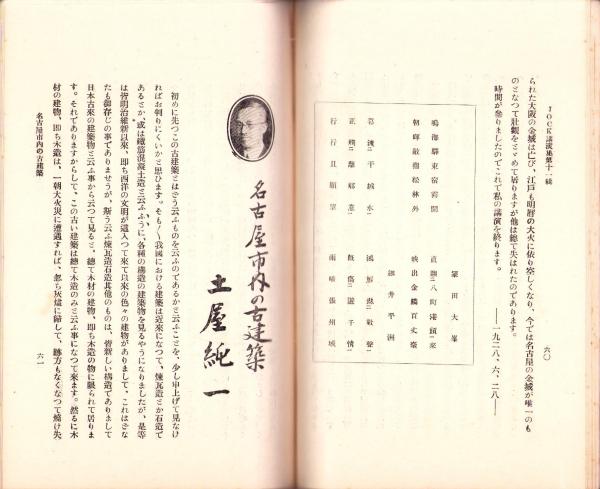 JOCK講演集第十一輯
六〇
られた大阪の金城は亡び、江戸も明曆の大火に依り空しくなり、今では名古屋の金城が唯一のも
のとなつて壯觀をとゞめて居りますが他は總て失はれたのであります。
時間が參りましたのでこれで私の講演を終ります。
――一九二八、六、二八――
鳴海驛東宿霄間
朝暉敲樹松林外
映出金鱗百丈臺
細井平洲
行行且願望
雨晴張州城
名古屋市内の古建築
土屋純一
初めに先つこの古建築とはどう云ふものを云ふのであるかと云ふことを、少し申上げて見なけ
ればお判りにくいかと思ひます。そもそも我國における建築は近來になつて、煉瓦造とか石造で
あるとか、或は鐵筋混凝土造と云ふふうに、各種の構造の建築物を見るやうになりましたが、是等
は皆明治維新以來、即ち西洋の文明が這入つて來て以來の色々の建物がありまして、これはみな
たも御存じの事でありませうが、斯う云ふ煉瓦造石造其他のものは、皆新しい構造でありまして
日本古來の建築物と云ふ事から云つて見ると、總て木材の建物、即ち木造の物に限られて居りま
す。それでありますからして、この古い建築は總て木造のみと云ふ事になつて來ます。然るに木
材の建物、即ち木造は、一朝大火災に遭遇すれば、忽ち灰燼に歸して、跡方もなくなつて燒け失
名古屋市内の古建築
六一